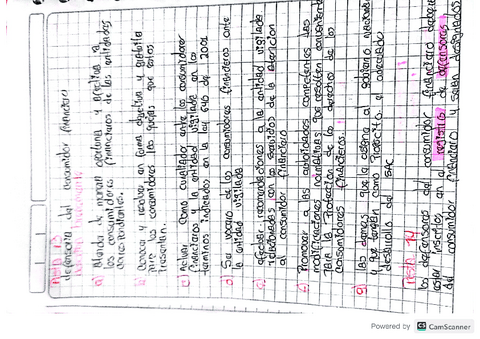 defensoria del consumidor financiero
a) Atender de manera oportuna y efectiva a
los consumidores financieros de las entidades
correspondientes.
b) Conocer y resolver en forma objetiva y gratuita
para los consumidores las quejas que estos
presenten.
c) Actuar como conciliador entre los consumidores
financieros y la entidad vigilada en los
terminos indicados en la ley 640 de 2001
d) Ser vocero de los consumidores financieros ante
la entidad vigilada
e) efectuar recomendaciones a la entidad vigilada
relacionadas con los servicios de la atencion
al consumidor financiero
f) Proponer a las autoridades competentes las
modificaciones normativas que resulten convenientes
para la Proteccion de los derechos de los
consumidores financieros.
g) las demas que le asigne el gobierno nacional
y que tengan como Proposito el adecuado
desarrollo del SAC
los defensores del consumidor financiero
estar inscritos en el registro de defensores
del consumidor financiero y seran designados
Powered by CS CamScanner